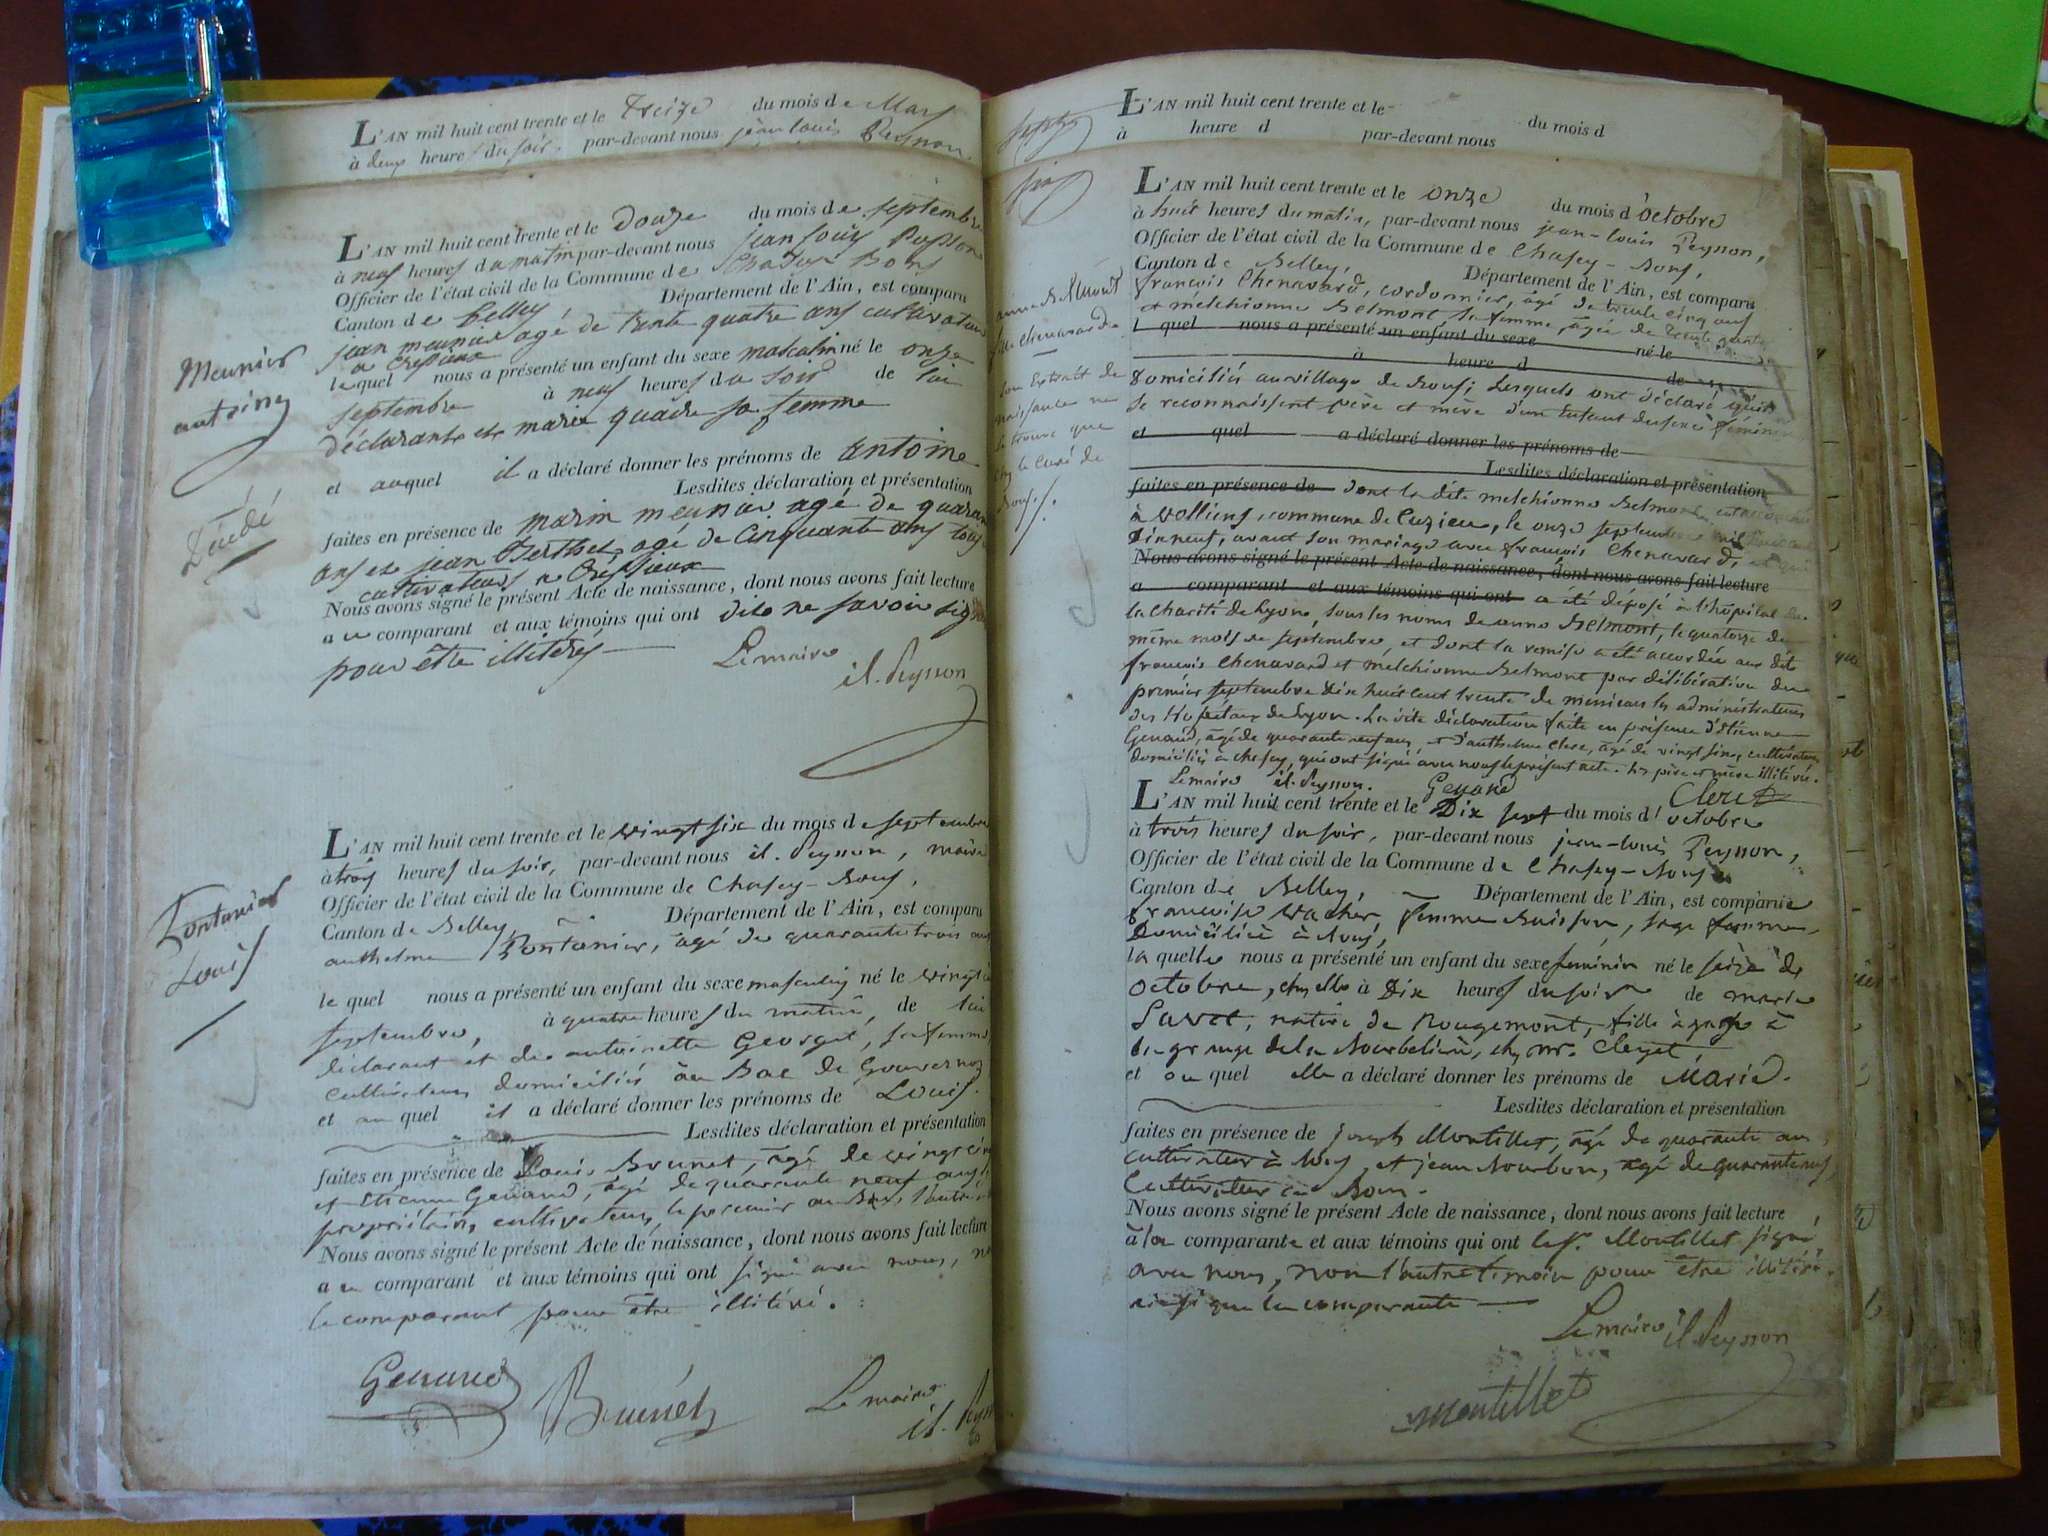 L'AN mil huit cent trente et le treize du mois de Mars
à deux heures du soir, par-devant nous jean louis Peysson
L'AN mil huit cent trente et le Douze du mois de septembre
à neuf heures du matin par-devant nous jean louis
Officier de l'état civil de la Commune de Chasey Bons
Canton de belley Département de l'Ain, est comparu
jean meunier agé de trente quatre ans cultivateur
a Crésieux
lequel nous a présenté un enfant du sexe masculin né le onze
septembre à neuf heures du soir de lui
déclarant et marie sa femme
et auquel il a déclaré donner les prénoms de antoine
Lesdites déclaration et présentation
faites en présence de marin meunier agé de
ans et jean Berthet agé de Cinquante ans tous
cultivateurs a Crésieux
Nous avons signé le présent Acte de naissance, dont nous avons fait lecture
au comparant et aux témoins qui ont dit ne savoir
pour être illitérés
Le maire
il. Peysson
Meunier
antoine
Décédé
L'AN mil huit cent trente et le vingt six du mois de septembre
à trois heures du soir, par-devant nous il. Peysson, maire
Officier de l'état civil de la Commune de Chasey-Bons,
Canton de Belley, Département de l'Ain, est comparu
anthelme Pontanier, âgé de quarante trois ans
le quel nous a présenté un enfant du sexe masculin né le vingt
septembre, à quatre heures du matin, de lui
déclarant et de antoinette Georget, sa femme
cultivateurs domiciliés au Bac de
et au quel il a déclaré donner les prénoms de Louis.
Lesdites déclaration et présentation
faites en présence de Louis Brunet, âgé de vingt cinq
et Etienne Genand, âgé de quarante neuf ans
propriétaires cultivateurs, le premier l'autre
Nous avons signé le présent Acte de naissance, dont nous avons fait lecture
au comparant et aux témoins qui ont signé avec nous, non
le comparant pour être illitéré.
Genand Brunet Le maire
il.
Pontanier
Louis
L'AN mil huit cent trente et le du mois d
à heure d par-devant nous
L'AN mil huit cent trente et le onze du mois d'octobre
à huit heures du matin, par-devant nous jean-louis Peysson,
Officier de l'état civil de la Commune de Chasey-Bons,
Canton de Belley, Département de l'Ain, est comparu
françois Chenavard, cordonnier, âgé de trente cinq ans
et melchionne Belmont sa femme, âgée de trente
l quel nous a présenté un enfant du sexe né le
à heure d de
Domiciliés au village de Bons; Lesquels ont déclaré qu'ils
se reconnaissent père et mère d'un Enfant du sexe féminin
et quel a déclaré donner les prénoms de
Lesdites déclaration et présentation
faites en présence de dont la dite melchionne Belmont
à volliens, commune de Cuzieu, le onze septembre
Dix neuf, avant son mariage avec françois Chenavard, et qui
Nous avons signé le présent Acte de naissance, dont nous avons fait lecture
a comparant et aux témoins qui ont a été déposé à l'hôpital de
la charité de Lyon, sous les noms de anne Belmont, le quatorze du
même mois de septembre, et dont la remise a été accordée aux dits
françois Chenavard et melchionne Belmont par délibération du
premier septembre Dix huit cent trente de messieurs les administrateurs
des Hopitaux de Lyon. La dite déclaration faite en présence d'Etienne
Genand, âgé de quarante neuf ans, et d'anthelme Clerc, âgé de vingt cinq, cultivateurs
domiciliés à chasey, qui ont signé avec nous le présent acte. les père et mère illitérés.
Le maire il. Peysson. Genand Clerc
anne Belmont
fille Chenavard
Son Extrait de
naissance ne
se trouve que
chez le Curé de
Bons.
L'AN mil huit cent trente et le Dix sept du mois d'octobre
à trois heures du soir, par-devant nous jean-louis Peysson,
Officier de l'état civil de la Commune de Chasey-Bons
Canton de Belley, Département de l'Ain, est comparue
françoise Vacher, femme Buisson, sage femme
Domiciliée à Bons,
laquelle nous a présenté un enfant du sexe féminin né le seize de
octobre, chez elle à Dix heures du soir de marie
Savet, native de Rougemont, fille à gages à
la grange de la chez mr. Clerget
et au quel elle a déclaré donner les prénoms de Marie.
Lesdites déclaration et présentation
faites en présence de joseph Montillet, âgé de quarante ans
cultivateur à Bons, et jean Bourbon, âgé de quarante neuf
Cultivateur à Bons.
Nous avons signé le présent Acte de naissance, dont nous avons fait lecture
à la comparante et aux témoins qui ont le sr. Montillet signé
avec nous, non l'autre témoin pour être illitéré,
ainsi que la comparante
Le maire il Peysson
montillet